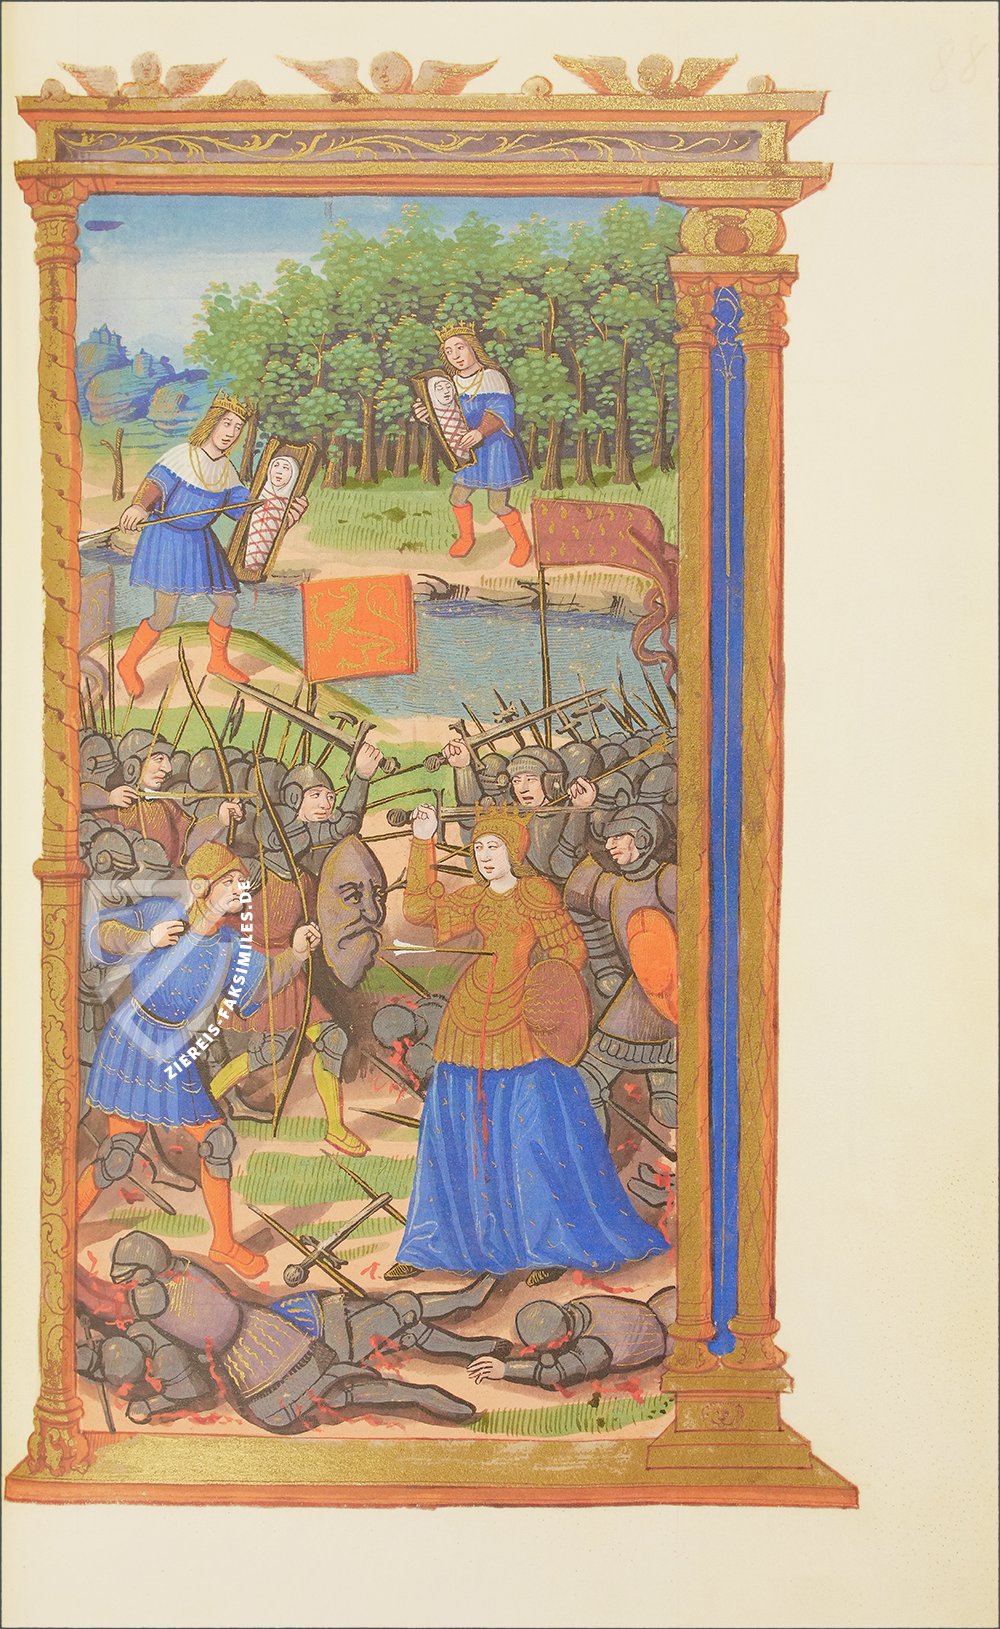 88
ZIEREIS-FAKSIMILES.DE